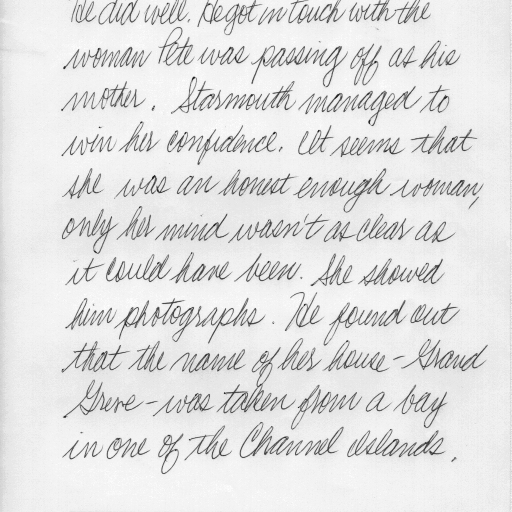 He did well. He got in touch with the
woman Pete was passing off as his
mother. Starmouth managed to
win her confidence. It seems that
she was an honest enough woman,
only her mind wasn't as clear as
it could have been. She showed
him photographs. He found out
that the name of her house - Grand
Greve - was taken from a bay
in one of the Channel Islands.